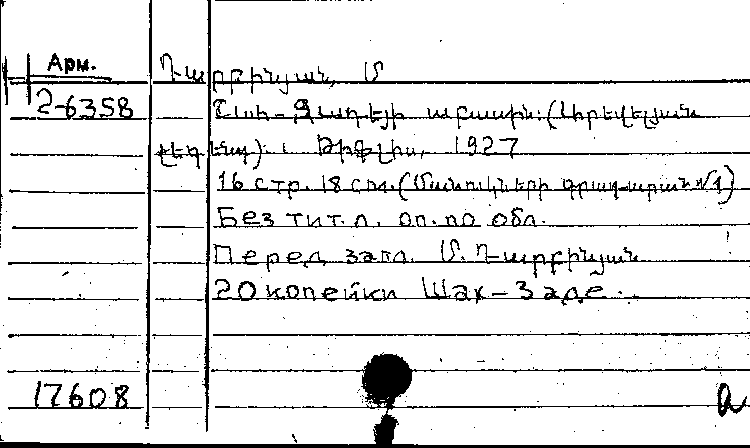 Арм.
Դարբինյան, Մ
2-6358
Շահ-Զադեյի աբասին: (Արևելյան
լեգենդ). Թիֆլիս, 1927
16 стр. 18 см. (Մանուկների գրադարան №1)
Без тит. л. оп. по обл.
Перед загл. Մ. Դարբինյան
20 копейки Шах-Заде.
17608
а